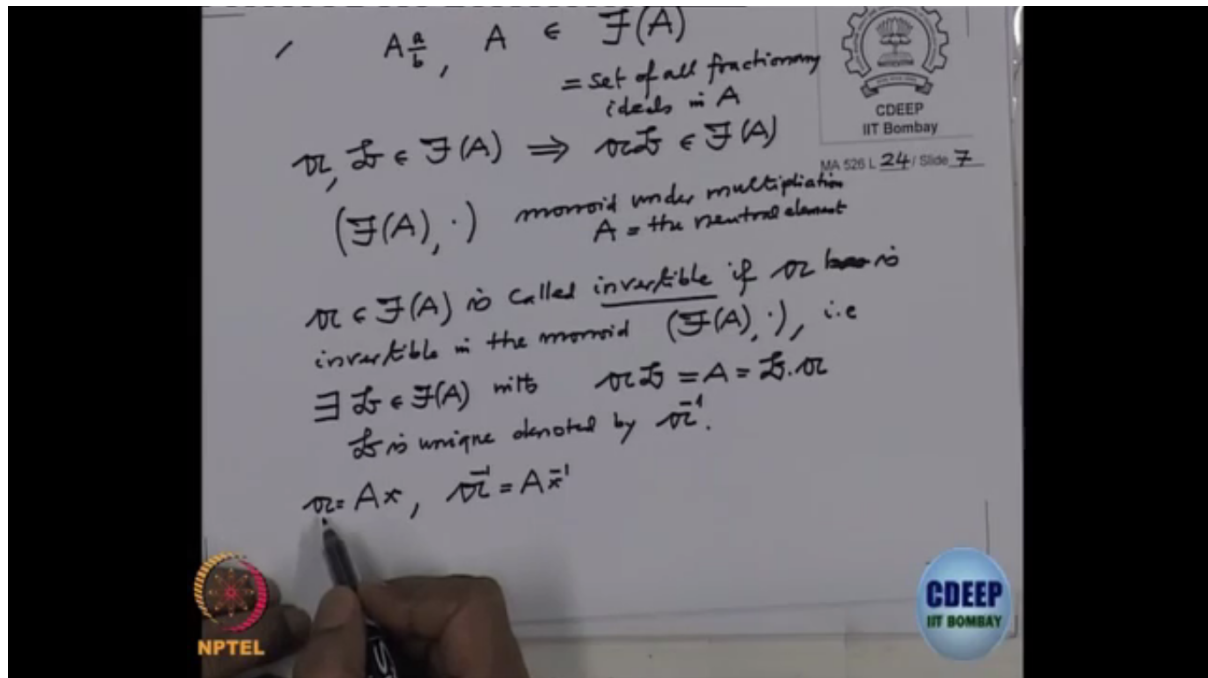 A a/b, A ∈ 𝓕(A)
= set of all fractionary
ideals in A
CDEEP
IIT Bombay
𝔄, 𝔅 ∈ 𝓕(A) ⇒ 𝔄𝔅 ∈ 𝓕(A)
MA 526 L 24 / Slide 7
(𝓕(A), ·) monoid under multipliation
A = the neutral element
𝔄 ∈ 𝓕(A) is called invertible if 𝔄 is
invertible in the monoid (𝓕(A), ·), i.e
∃ 𝔅 ∈ 𝓕(A) with 𝔄𝔅 = A = 𝔅.𝔄
𝔅 is unique denoted by 𝔄⁻¹.
𝔄 = Ax, 𝔄⁻¹ = Ax⁻¹
NPTEL
CDEEP
IIT BOMBAY